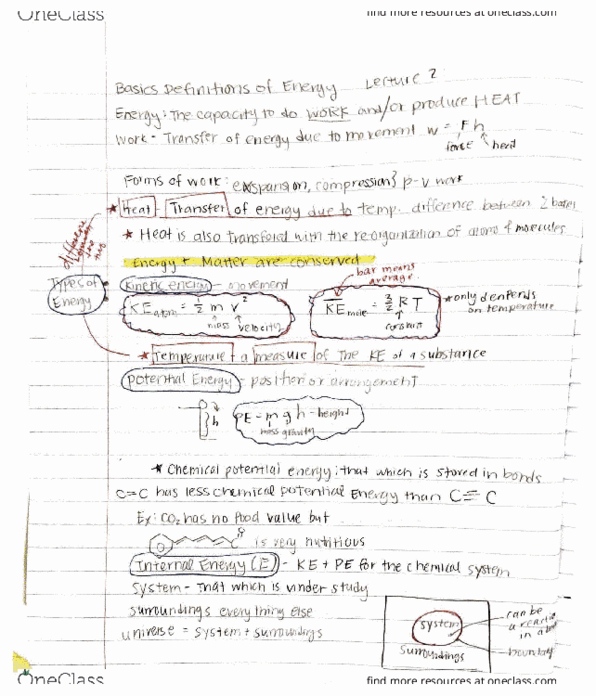 OneClass
find more resources at oneclass.com
Basics Definitions of Energy Lecture 2
Energy: The capacity to do WORK and/or produce HEAT
Work - Transfer of energy due to movement w = F h
force
Forms of work: expansion, compression} P-V work
★ Heat - Transfer of energy due to temp. difference between 2
★ Heat is also transfered with the reorganization of atoms & molecules
Energy + Matter are conserved
bar means average
Types of Energy
Kinetic energy - movement
KE atom = 1/2 m v²
mass velocity
KE mole = 3/2 R T
constant
★ only depends on temperature
★ Temperature + a measure of the KE of a substance
Potential Energy - position or arrangement
h
PE = m g h - height
mass gravity
★ Chemical potential energy: that which is stored in bonds
C=C has less chemical potential Energy than C≡C
Ex: CO₂ has no food value but
is very nutritious
Internal Energy (E) - KE + PE for the chemical system
System - that which is under study
surroundings everything else
universe = system + surroundings
system
surroundings
can be
in a
OneClass
find more resources at oneclass.com